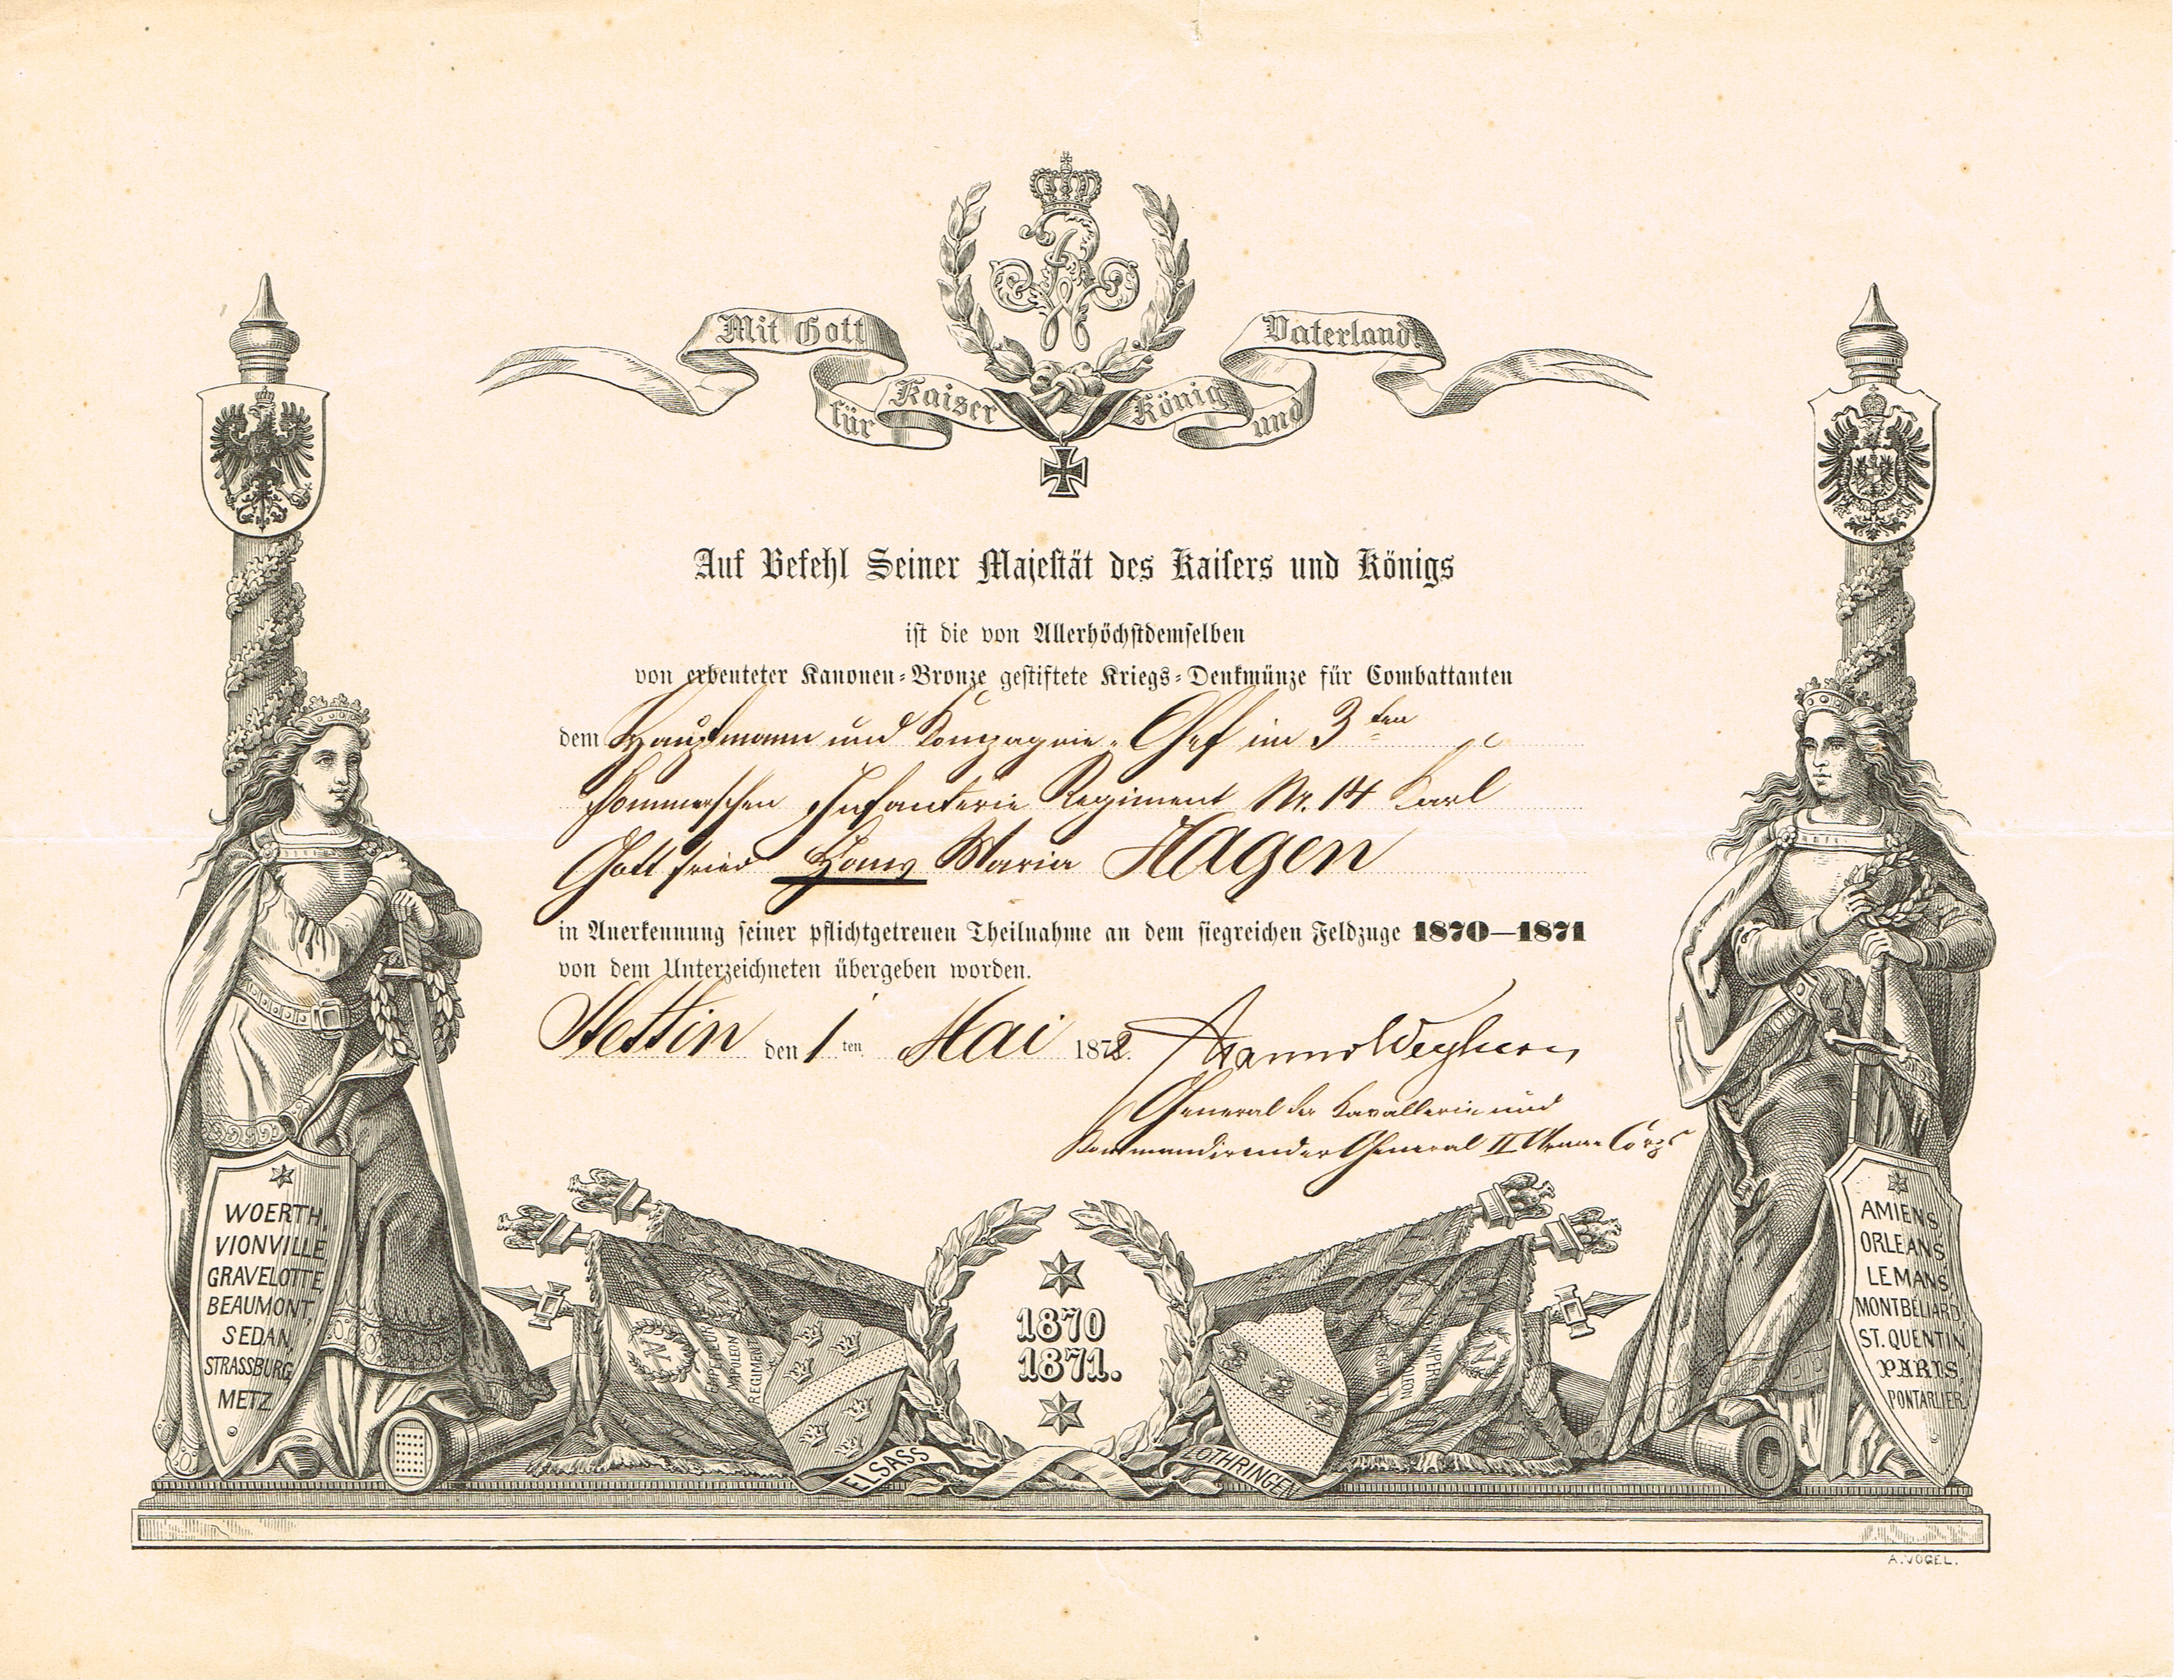 Mit Gott
für Kaiser König und
Vaterland
Auf Befehl Seiner Majestät des Kaisers und Königs
ist die von Allerhöchstdemselben
von erbeuteter Kanonen-Bronze gestiftete Kriegs-Denkmünze für Combattanten
dem Hauptmann und Kompagnie-Chef im 3ten
Pommerschen Infanterie Regiment Nr. 14 Carl
Gottfried Hans Maria Hagen
in Anerkennung seiner pflichtgetreuen Theilnahme an dem siegreichen Feldzuge 1870—1871
von dem Unterzeichneten übergeben worden.
Stettin den 1 ten Mai 1872.
General der Kavallerie und
Kommandirender General II Armee Corps
WOERTH,
VIONVILLE
GRAVELOTTE
BEAUMONT,
SEDAN,
STRASSBURG
METZ
EMPEREUR
NAPOLEON
REGIMENT
ELSASS
1870
1871.
LOTHRINGEN
AMIENS
ORLEANS
LEMANS
MONTBELIARD,
ST. QUENTIN,
PARIS,
PONTARLIER.
A. VOGEL.